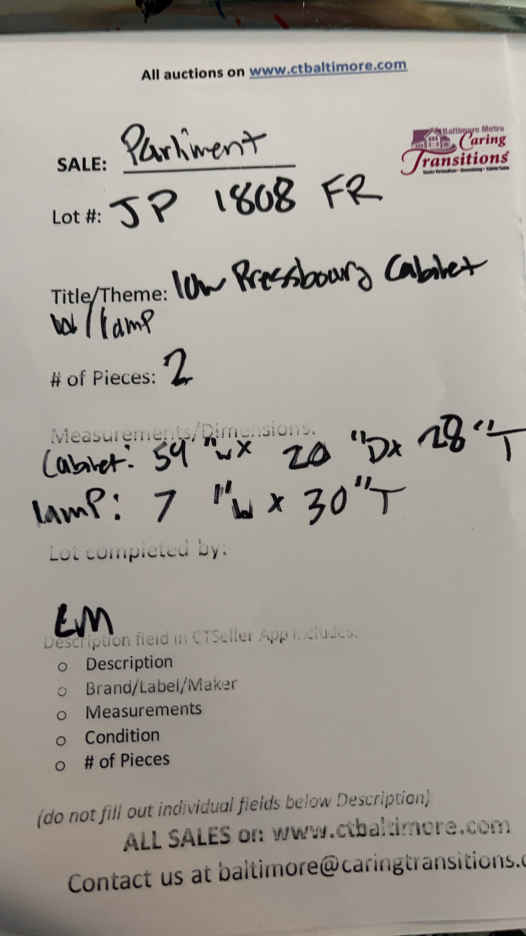 All auctions on www.ctbaltimore.com
Baltimore Metro
Caring
Transitions
SALE: Parliment
Lot #: JP 1808 FR
Title/Theme: low Pressbourg Cabinet
w/ lamp
# of Pieces: 2
Measurements/Dimensions:
Cabinet: 59 "w x 20 "D x 28 "T
lamp: 7 "w x 30"T
Lot completed by:
EM
Description field in CTSeller App includes:
o Description
o Brand/Label/Maker
o Measurements
o Condition
o # of Pieces
(do not fill out individual fields below Description)
ALL SALES on www.ctbaltimore.com
Contact us at baltimore@caringtransitions.c